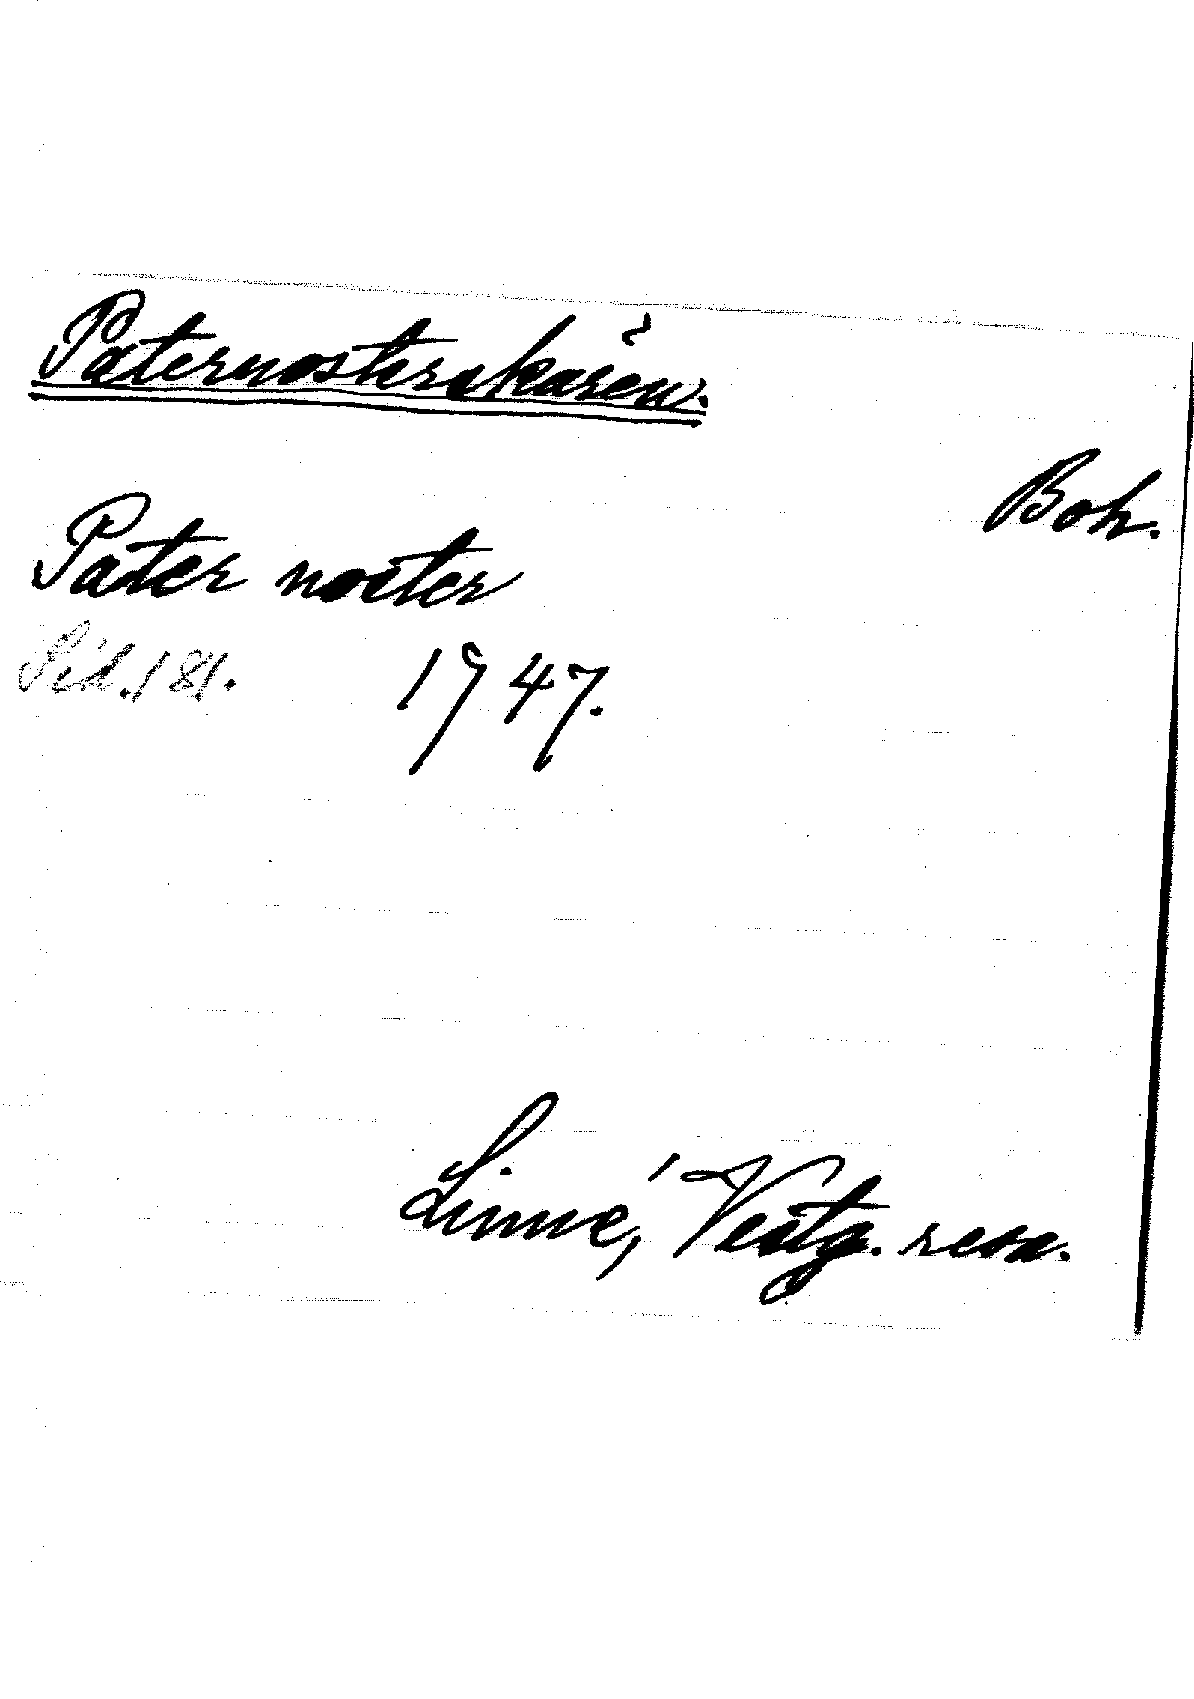 Paternosterskären.
Boh.
Pater noster
Sid. 181.
1747.
Linné, Vestg. resa.